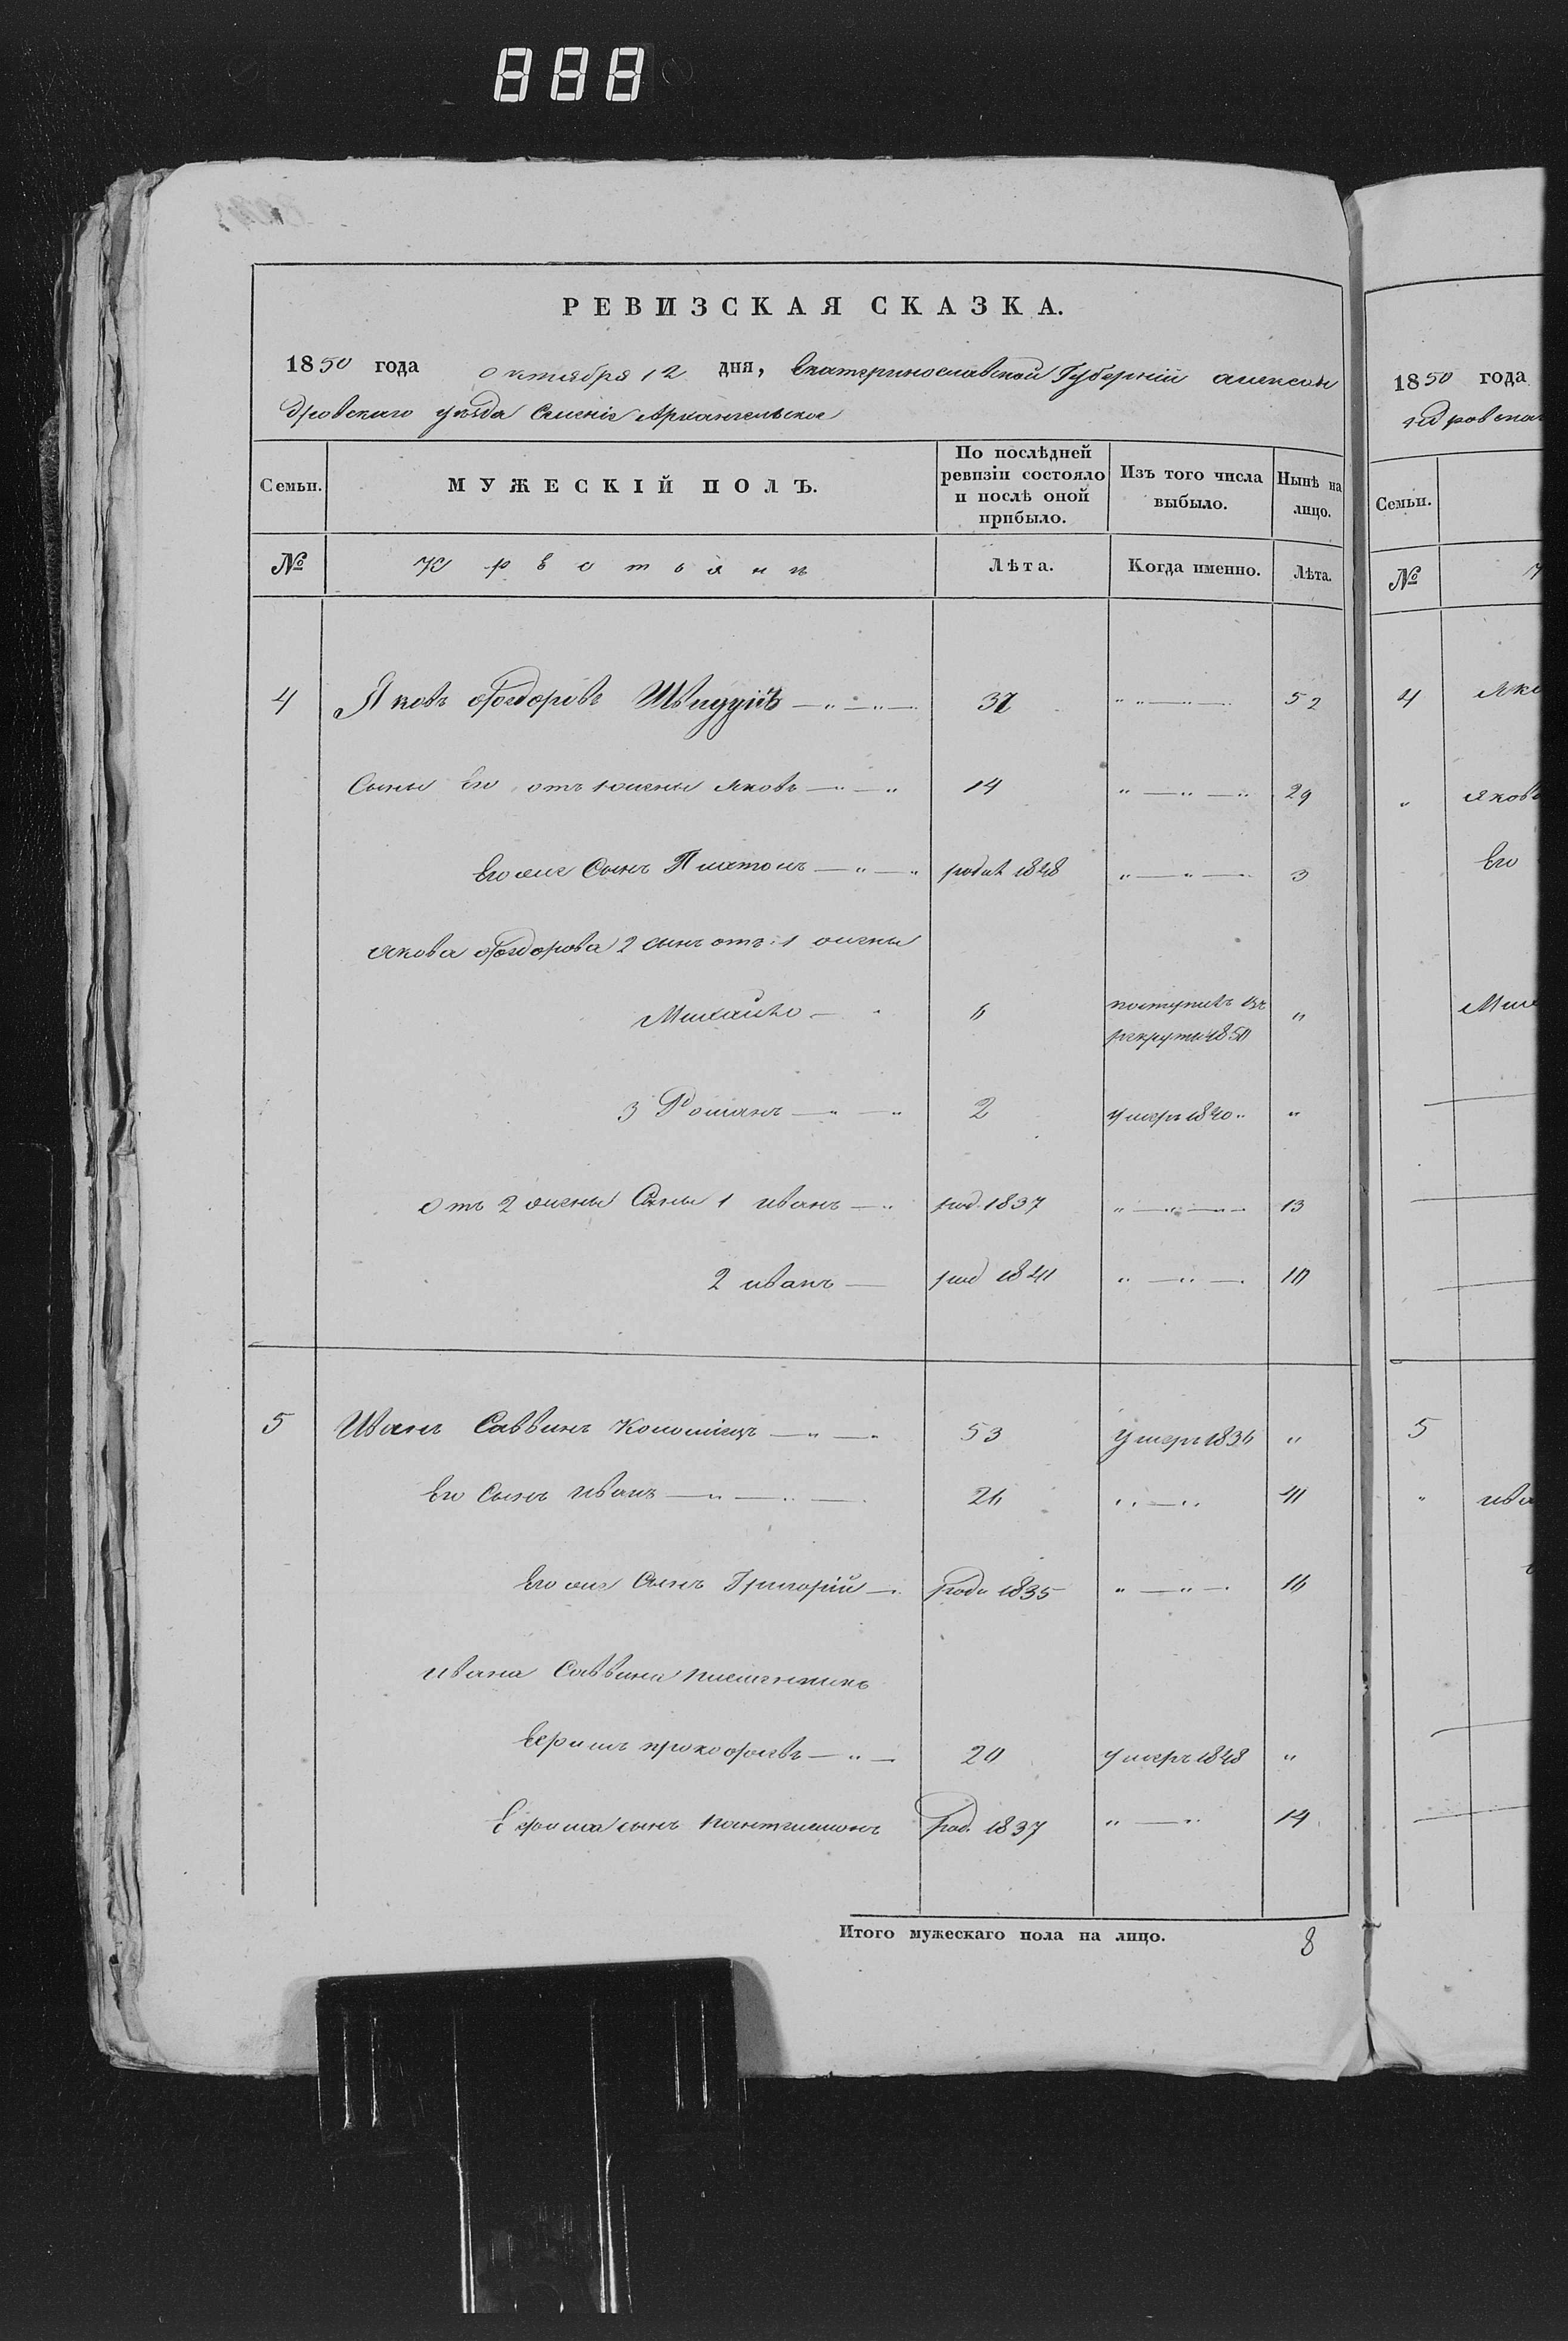 888
РЕВИЗСКАЯ СКАЗКА.
1850 года октября 12 дня, Екатеринославской Губерній алексан
дровскаго уѣзда Селеніе Архангельское
Семьи. МУЖЕСКІЙ ПОЛЪ. По послѣдней ревизіи состояло и послѣ оной прибыло. Изъ того числа выбыло. Нынѣ на лицо.
№ Крестьянъ Лѣта. Когда именно. Лѣта.
4 Яковъ Ѳедоровъ 37 52
Сыны Его отъ 1 жены Яковъ 14 29
Его же Сынъ Платонъ родил 1848 3
Якова Ѳедорова 2 сынъ отъ 1 жены
Михайло 6 поступилъ въ рекруты 1850 "
3 Романъ 2 умеръ 1840 "
Отъ 2 жены Сыны 1 иванъ род. 1837 13
2 иванъ род 1841 10
5 Иванъ Саввинъ Коломіецъ 53 Умеръ 1836 "
Его Сынъ иванъ 26 41
Его же Сынъ Григорій роди 1835 16
ивана Саввина племянникъ
прокофьевъ 20 умеръ 1848 "
сынъ пантелимонъ род. 1837 14
Итого мужескаго пола на лицо. 8
1850 года
ндровскаг
Семьи.
№
4 Яко
" Яковъ
Его
Мих
5
" ива